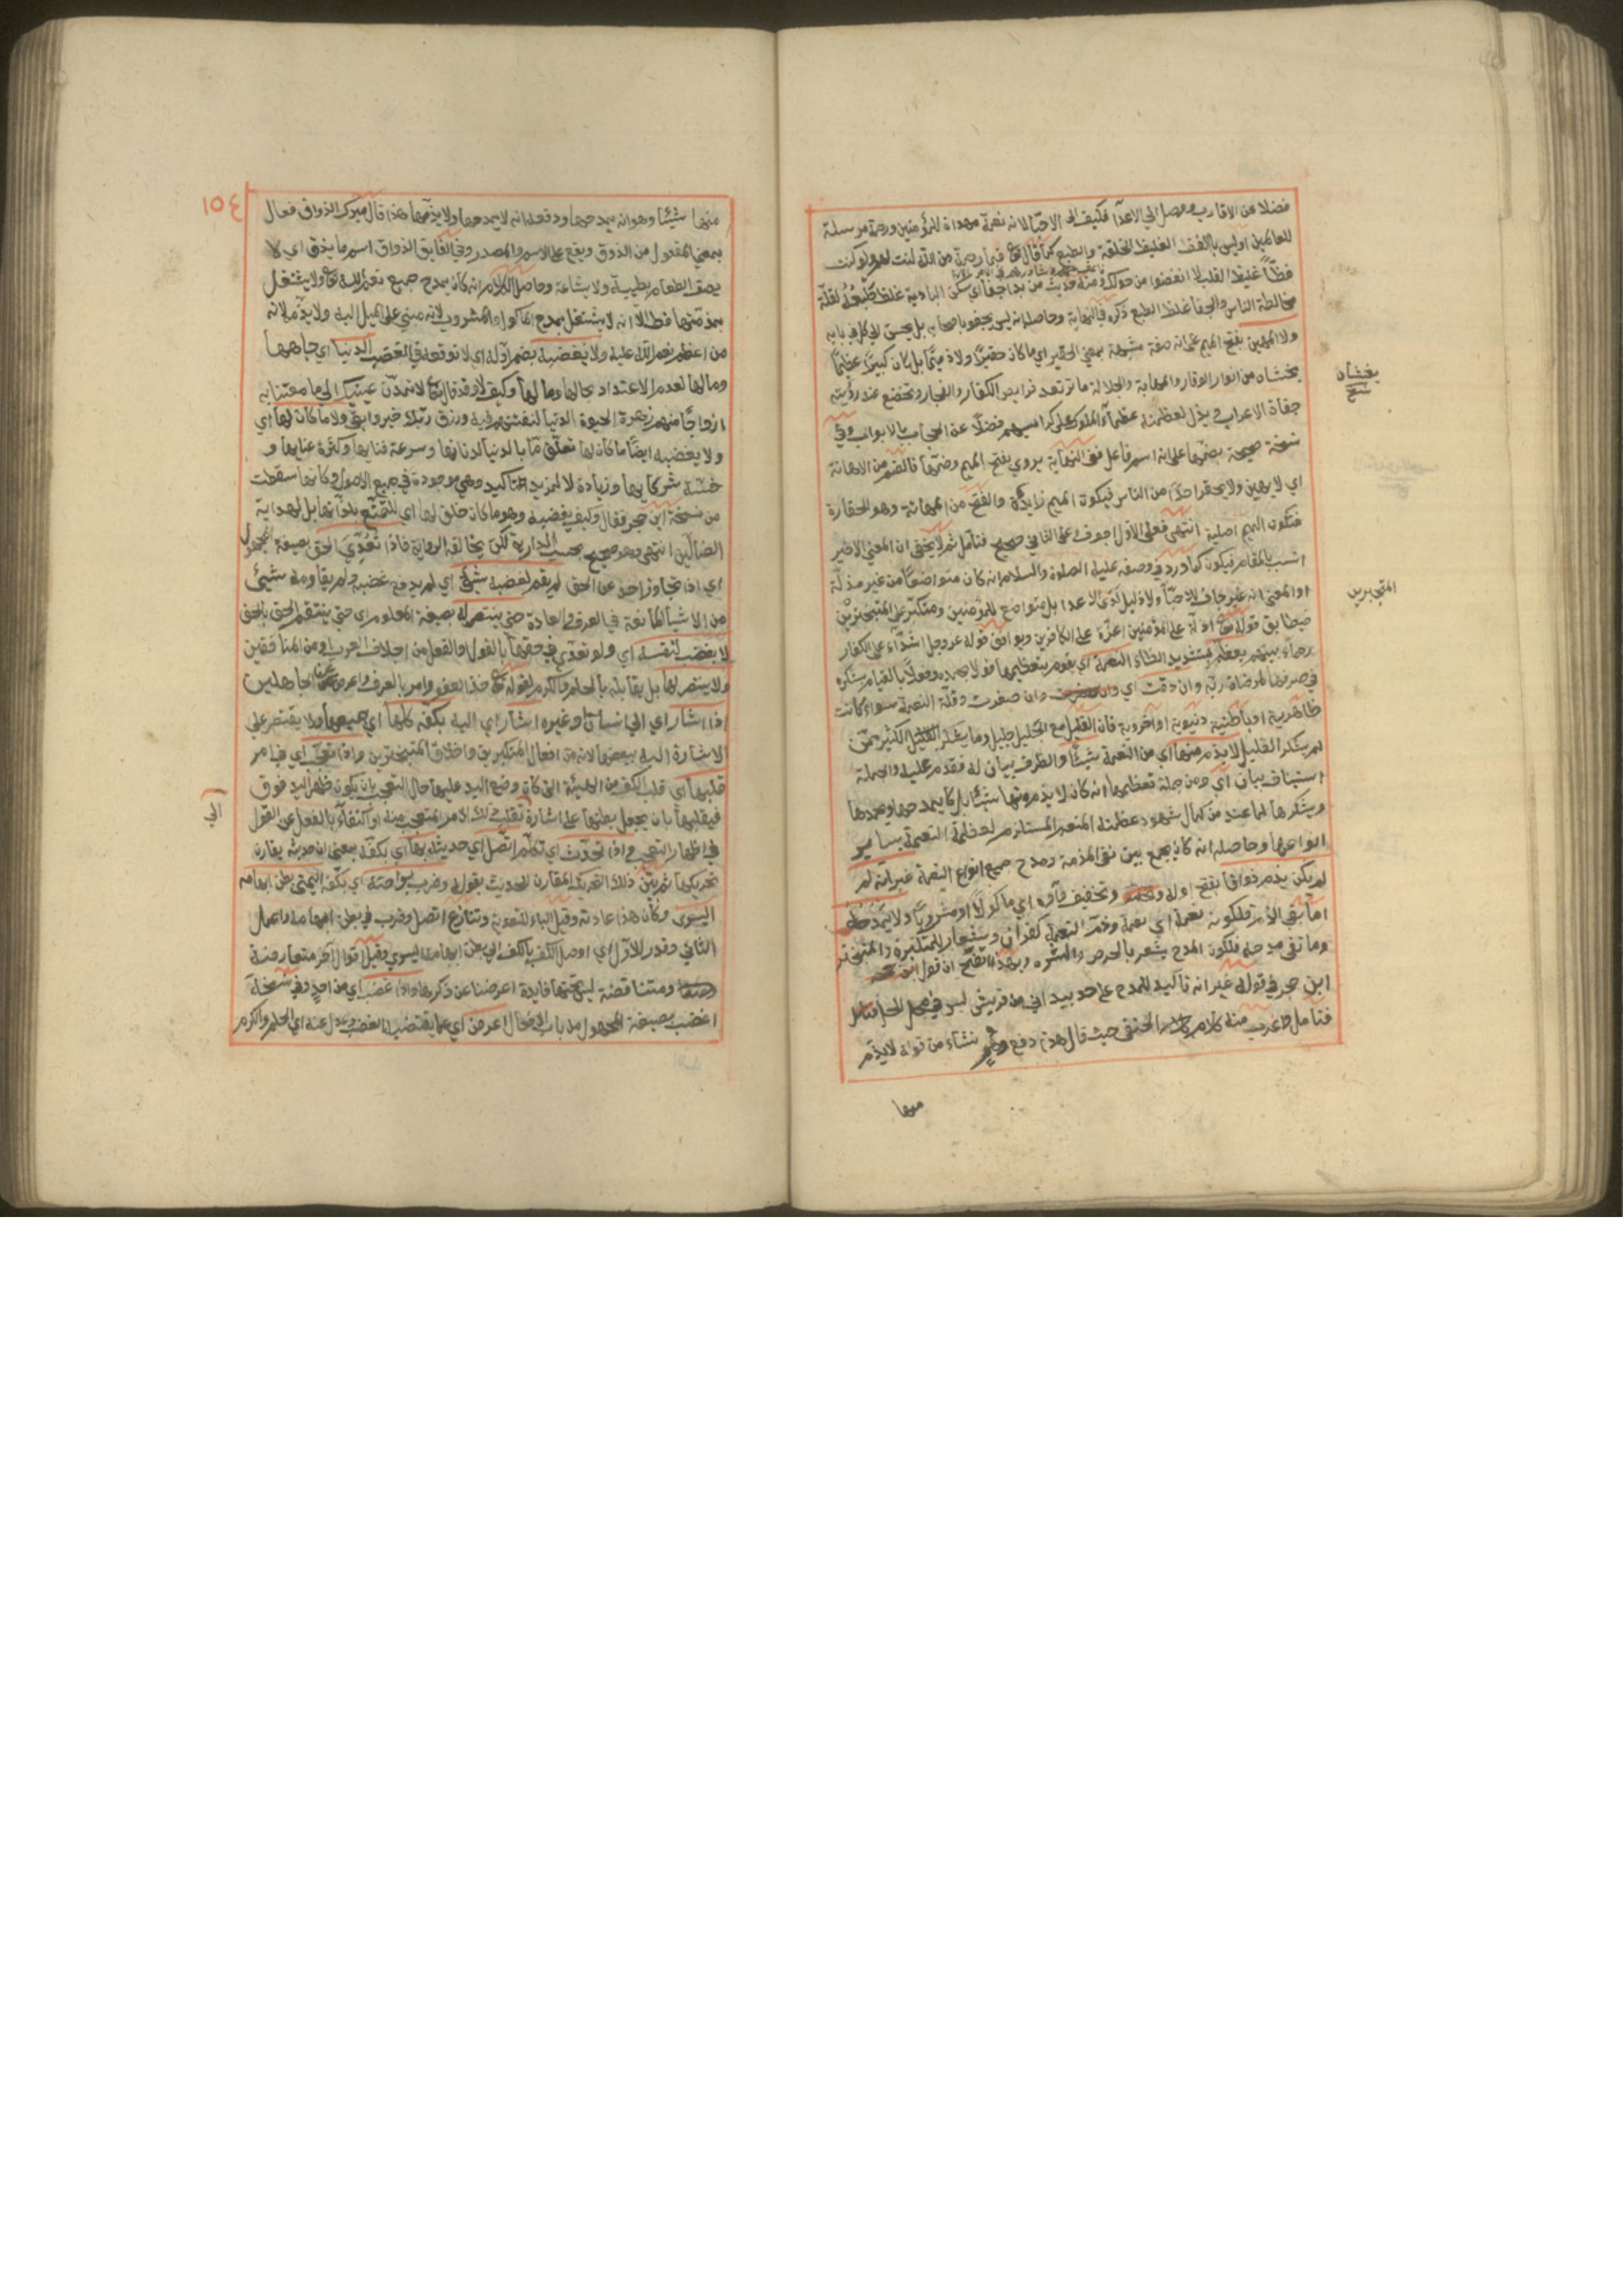 فضلا عن الاقارب وصل الي الاعدآ فكيف الي الاحبّا لانه نعمة مهداة للمؤمنين ورحمة مرسلة
للعالمين اوليس بالفظ الغليظ الخلقة والطبع كما قال تع فبما رحمة من الله لنت لهم ولو كنت
فظّاً غليظ القلب لا انفضوا من حولك ومنه حديث من بدا جفا اي سكن البادية غلظ طبعه لقلّة
مخالطة الناس والجفا غلظ الطبع ذكره في النهاية وحاصله انه ليس يجفو باصحابه بل يحسن الي كل في بابه
ولا المهين بفتح الميم علي انه صفة مشبهة بمعني الحقير اي ما كان حقيرًا ولا ذميمًا بل كان كبيرًا عظيمًا
يخشاه من انوار الوقار والمهابة والجلالة ما ترتعد فرايص الكفار والفجار وتخضع عند رؤيته
جفاة الاعراب و يذل لعظمته عظمآء الملوك علي كراسيهم فضلًا عن الحجاب بالابواب وفي
نسخة صحيحة بضمّها علي انه اسم فاعل ففي النهاية يروي بفتح الميم وضمّها فالضم من الاهانة
اي لا يهين ولا يحقر احدًا من الناس فيكون الميم زايدة والفتح من المهانة وهو الحقارة
فتكون الميم اصلية انتهي فعلي الاول اجوف وعلي الثاني صحيح فتامل ثم لا يخفي ان المعني الاخير
انسب بالمقام فيكون كما ورد في وصفه عليه الصلوة والسلام انه كان متواضعًا من غير مذلّة
او المعني انه غير جاف للاحبّآ ولا ذليل لدي الاعدا بل متواضع للمؤمنين ومتكبّر علي المتبخترين
فيطابق قوله تع اذلّة علي المؤمنين اعزّة علي الكافرين ويوافق قوله عز وجل اشدّآء علي الكفار
رحمآء بينهم يعظّم بتشديد الظاء النعمة اي يقوم بتعظيمها قولا بحمده وفعلًا بالقيام بشكره
في صرفها لمرضاة ربّه وان دقت اي وان صغرت وقلّة النعمة سواء كانت
ظاهرية او باطنية دنيوية او اخروية فان القليل مع الجليل جليل وما يشكر الكثير من
لم يشكر القليل لا يذم منها اي من النعمة شيئًا والظرف بيان له فقدم عليه والجملة
استيناف بيان اي ومن جملة تعظيمها انه كان لا يذم منها شيئا بل كان يمدحها ويحمدها
ويشكرها لما عنده من كمال شهود عظمته المنعم المستلزم لعظمة النعمة بساير
انواعها وحاصله انه كان يجمع بين نفي المذمة ومدح جميع انواع النعمة غير انه لم
لم يكن يذم ذواقا بفتح اوله وتخفيف واوه اي ماكولًا او مشروبًا ولا يمدحه
امّا نفي الذم فلكونه نعمة اي نعمة وذم النعمة كفران وشعار للمتكبّرة والمتبختر
وما نفي مدحه فلكون المدح يشعر بالحرص والشره وبهذا يتضح ان قول
ابن حجر في قوله غير انه تاكيد للمدح علي حد بيد اني من قريش ليس في محل الحل فتامل
فتامل واغرب منه كلام الحنفي حيث قال هذا دفع وهم نشاء من قوله لا يذم
منها
يغشاه
نسخ
المتجبرين
١٥٤
منها شيئا وهو انه يمدحها ودفعه انه لا يمدحها ولا يذمّها هذا قال ميرك الذواق فعال
بمعني المفعول من الذوق ويقع علي الاسم والمصدر وفي الفايق الذواق اسم ما يذق اي لا
يصف الطعام بطيبة ولا بشاعة وحاصل الكلام انه كان يمدح جميع نعم الله تع ولا يشتغل
بمذمّتها قط الا انه لا يشتغل بمدح الماكول والمشروب لانه مبني علي الميل اليه ولا يذمه لانه
من اعظم نعم الله عليه ولا تغضبه بضم اوّله اي لا توقعه في الغضب الدنيا اي جاهها
ومالها لعدم الاعتداد بحالها ومالها وكيف لا وقد قال تع لا تمدّن عينيك الي ما متعنا به
ازواجًا منهم زهرة الحيوة الدنيا لنفتنهم فيه ورزق ربّك خير وابقي ولا ما كان لها اي
ولا يغضبه ايضًا ما كان لها تعلّق مّا بالدنيا لدنائتها وسرعة فنايها وكثرة عنايها و
خسّة شركايها وزيادة لا لمزيد التاكيد وهي موجودة في جميع الاصول وكانها سقطت
من نسخة ابن حجر فقال وكيف يغضبه وهو ما كان خلق لها اي للتمتّع بلذّاتها بل لهداية
الضالّين انتهي وهو صحيح بحسب الدارية لكن يخالفه الرواية فاذا تعدّي الحق بصيغة المجهول
اي اذا تجاوز احد عن الحق لم يقم لغضبه شيئ اي لم يدفع غضبه ولم يقاومه شيئ
من الاشيآ المانعة في العرف والعادة حتي ينتصر له بصيغة المعلوم اي حتي ينتقم للحق بالحق
لا يغضب لنفسه اي ولو تعدّي في حقها بالقول والفعل من اجلاف العرب او من المنافقين
ولا ينتصر لها بل يقابله بالحلم والكرم لقوله تع خذ العفو وامر بالعرف واعرض عن الجاهلين
اذا اشار اي الي انسان وغيره اشار اي اليه بكفّه كلّها اي جميعها ولا يقتصر علي
الاشارة اليه ببعضها لانه من افعال المتكبرين واخلاق المتبخترين واذا تعجّب اي في امر
قلبها اي قلب الكف من الهيئة التي كان وضع اليد عليها حال التعجب بان يكون ظهر اليد فوق
فيقلبها بان يجعل بطنها علي اشارة تقلب ذلك الامر المتعجب منه او اكتفاء بالفعل عن القول
في اظهار التعجب واذا تحدّث اي تكلّم اتّصل اي حديثه بها اي بكفّه بمعني ان حديثه يقارن
تحريكها ثم بيّن ذلك التحريك المقارن للحديث بقوله وضرب براحته اي بكفّه اليمني بطن ابهامه
اليسري وكان هذا عادته وقيل الباء للتعدية وتنازع اتصل وضرب في بطن ابهامه واعمل
الثاني وقدر للاول اي اوصل الكف بالكف الي بطن ابهامه اليسري وقيل اقوال آخر متعارضة
ومتناقضة ليس تحتها فايدة اعرضنا عن ذكرها واذا غضب اي من احدٍ وفي نسخة
اغضب بصيغة المجهول من باب الافعال اعرض اي عما يقتضيه الغضب وعدل عنه اي الحلم والكرم
الي